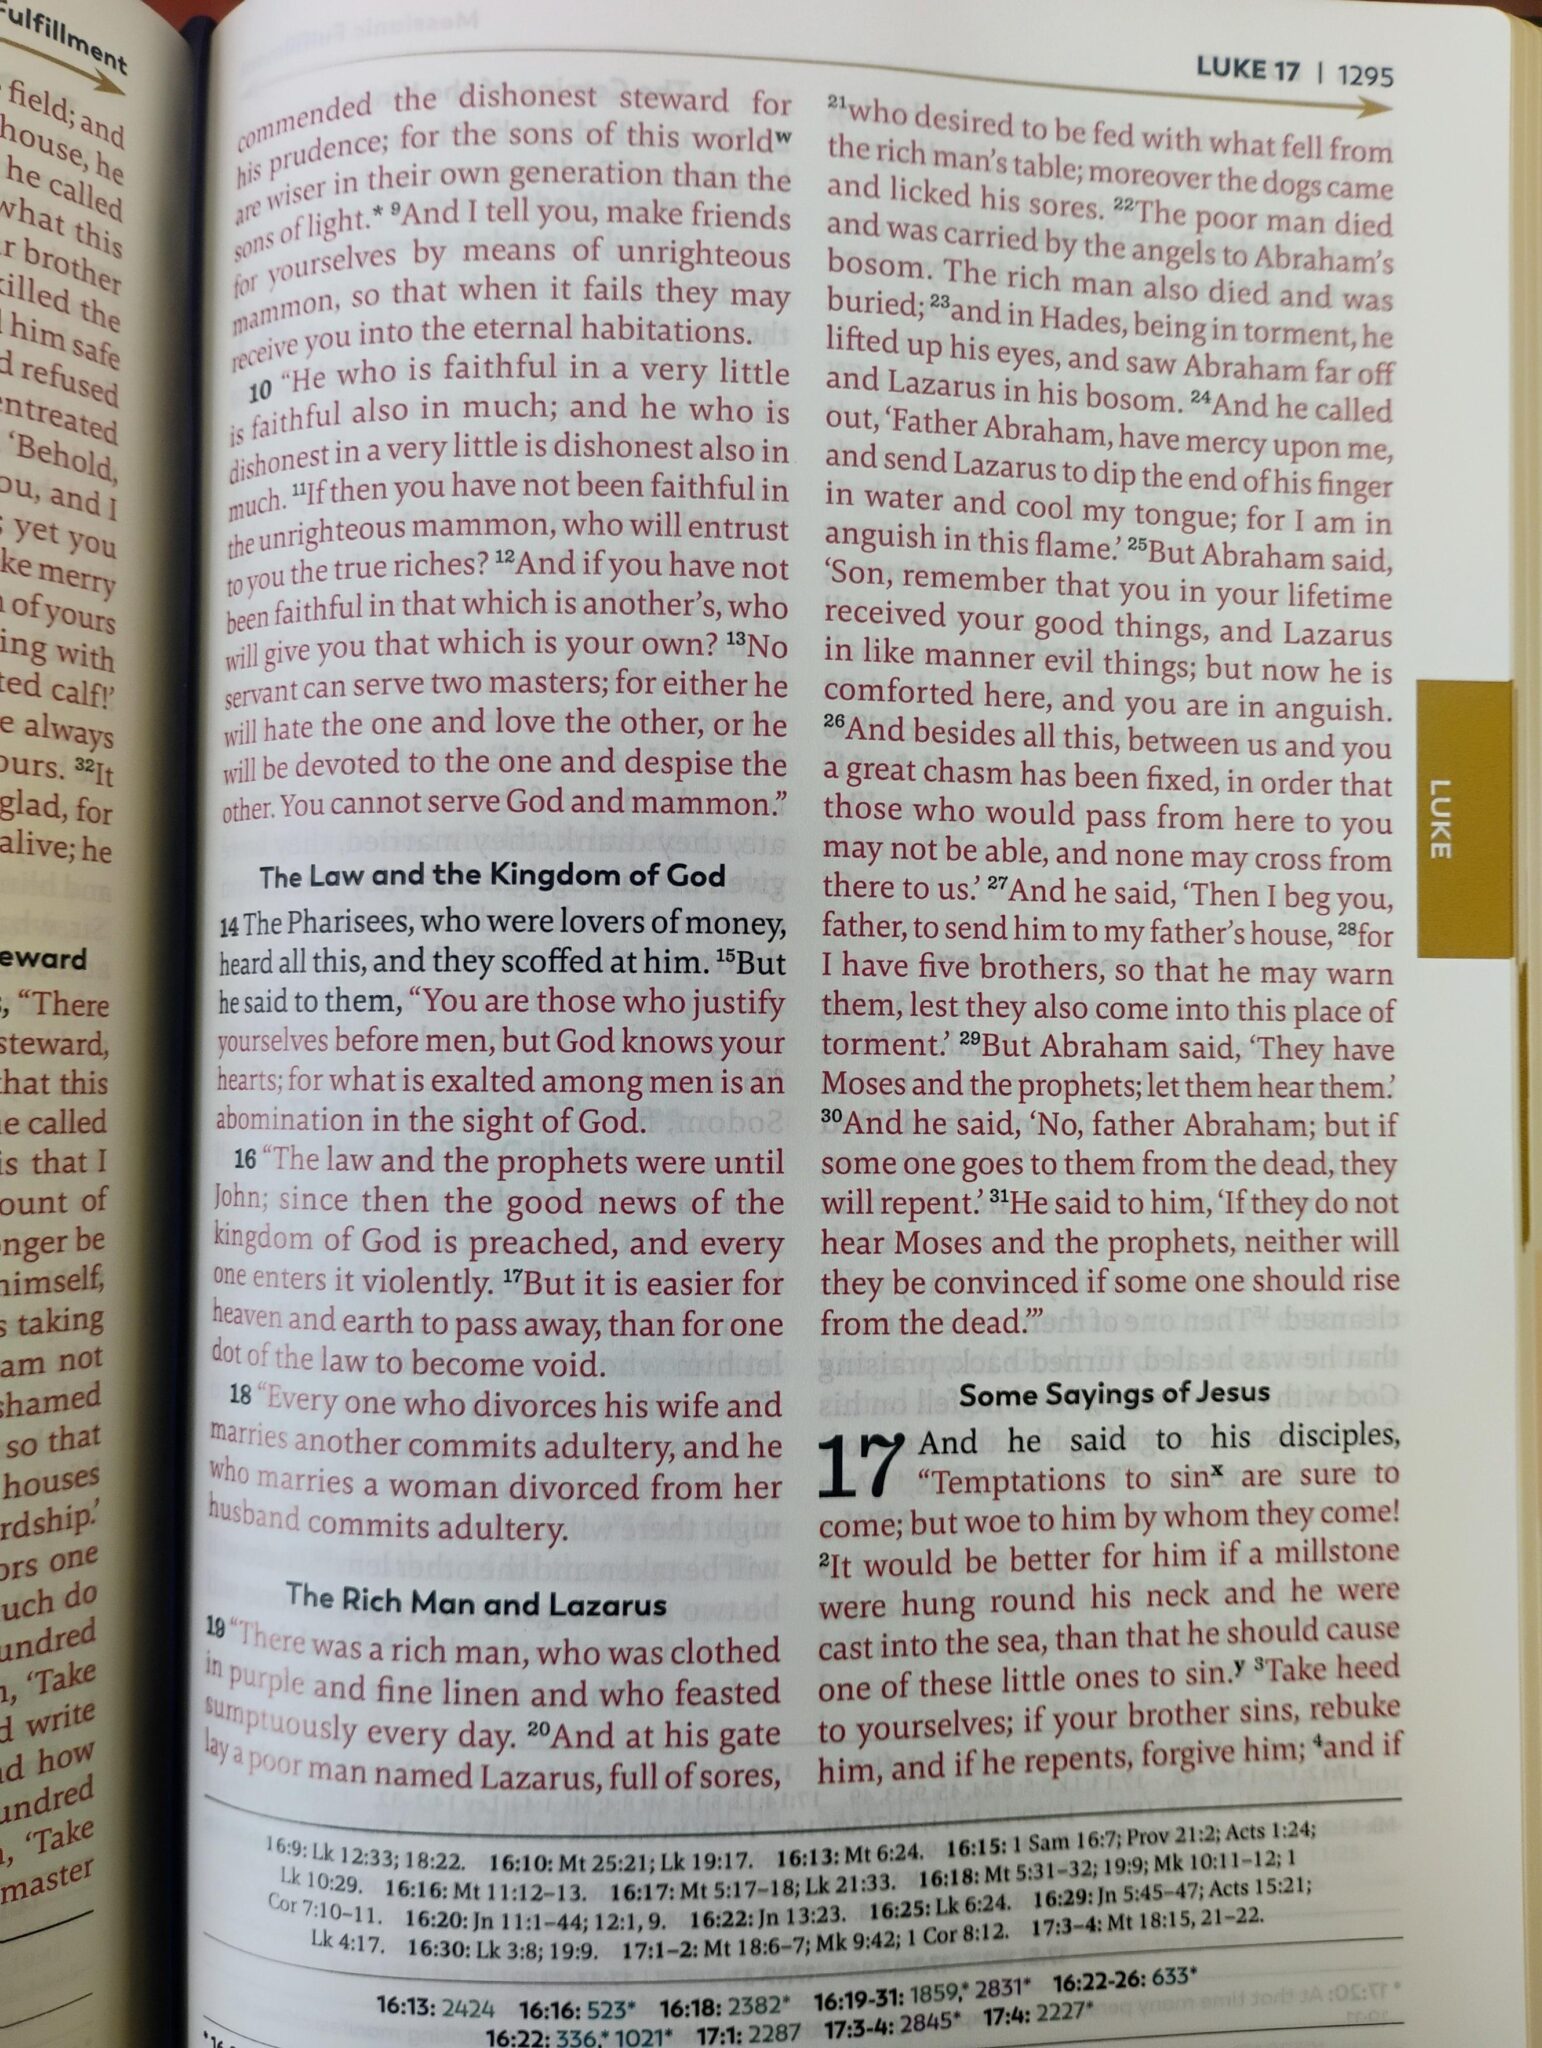 Fulfillment
field; and
house, he
he called
what this
brother
killed the
him safe
refused
entreated
'Behold,
you, and I
yet you
make merry
of yours
with
calf!'
always
³²It
glad, for
alive; he
"There
steward,
that this
called
is that I
of
be
himself,
taking
am not
so that
houses
one
much do
hundred
'Take
write
how
hundred
'Take
master
LUKE 17 | 1295
commended the dishonest steward for
his prudence; for the sons of this worldʷ
are wiser in their own generation than the
sons of light.* ⁹And I tell you, make friends
for yourselves by means of unrighteous
mammon, so that when it fails they may
receive you into the eternal habitations.
10 "He who is faithful in a very little
is faithful also in much; and he who is
dishonest in a very little is dishonest also in
much. ¹¹If then you have not been faithful in
the unrighteous mammon, who will entrust
to you the true riches? ¹²And if you have not
been faithful in that which is another's, who
will give you that which is your own? ¹³No
servant can serve two masters; for either he
will hate the one and love the other, or he
will be devoted to the one and despise the
other. You cannot serve God and mammon."
The Law and the Kingdom of God
14 The Pharisees, who were lovers of money,
heard all this, and they scoffed at him. ¹⁵But
he said to them, "You are those who justify
yourselves before men, but God knows your
hearts; for what is exalted among men is an
abomination in the sight of God.
16 "The law and the prophets were until
John; since then the good news of the
kingdom of God is preached, and every
one enters it violently. ¹⁷But it is easier for
heaven and earth to pass away, than for one
dot of the law to become void.
18 "Every one who divorces his wife and
marries another commits adultery, and he
who marries a woman divorced from her
husband commits adultery.
The Rich Man and Lazarus
19 "There was a rich man, who was clothed
in purple and fine linen and who feasted
sumptuously every day. ²⁰And at his gate
lay a poor man named Lazarus, full of sores,
²¹who desired to be fed with what fell from
the rich man's table; moreover the dogs came
and licked his sores. ²²The poor man died
and was carried by the angels to Abraham's
bosom. The rich man also died and was
buried; ²³and in Hades, being in torment, he
lifted up his eyes, and saw Abraham far off
and Lazarus in his bosom. ²⁴And he called
out, 'Father Abraham, have mercy upon me,
and send Lazarus to dip the end of his finger
in water and cool my tongue; for I am in
anguish in this flame.' ²⁵But Abraham said,
'Son, remember that you in your lifetime
received your good things, and Lazarus
in like manner evil things; but now he is
comforted here, and you are in anguish.
²⁶And besides all this, between us and you
a great chasm has been fixed, in order that
those who would pass from here to you
may not be able, and none may cross from
there to us.' ²⁷And he said, 'Then I beg you,
father, to send him to my father's house, ²⁸for
I have five brothers, so that he may warn
them, lest they also come into this place of
torment.' ²⁹But Abraham said, 'They have
Moses and the prophets; let them hear them.'
³⁰And he said, 'No, father Abraham; but if
some one goes to them from the dead, they
will repent.' ³¹He said to him, 'If they do not
hear Moses and the prophets, neither will
they be convinced if some one should rise
from the dead.'"
Some Sayings of Jesus
17 And he said to his disciples,
"Temptations to sinˣ are sure to
come; but woe to him by whom they come!
²It would be better for him if a millstone
were hung round his neck and he were
cast into the sea, than that he should cause
one of these little ones to sin.ʸ ³Take heed
to yourselves; if your brother sins, rebuke
him, and if he repents, forgive him; ⁴and if
LUKE
16:9: Lk 12:33; 18:22. 16:10: Mt 25:21; Lk 19:17. 16:13: Mt 6:24. 16:15: 1 Sam 16:7; Prov 21:2; Acts 1:24;
Lk 10:29. 16:16: Mt 11:12–13. 16:17: Mt 5:17–18; Lk 21:33. 16:18: Mt 5:31–32; 19:9; Mk 10:11–12; 1
Cor 7:10–11. 16:20: Jn 11:1–44; 12:1, 9. 16:22: Jn 13:23. 16:25: Lk 6:24. 16:29: Jn 5:45–47; Acts 15:21;
Lk 4:17. 16:30: Lk 3:8; 19:9. 17:1–2: Mt 18:6–7; Mk 9:42; 1 Cor 8:12. 17:3–4: Mt 18:15, 21–22.
16:13: 2424 16:16: 523* 16:18: 2382* 16:19-31: 1859,* 2831* 16:22-26: 633*
16:22: 336,* 1021* 17:1: 2287 17:3-4: 2845* 17:4: 2227*